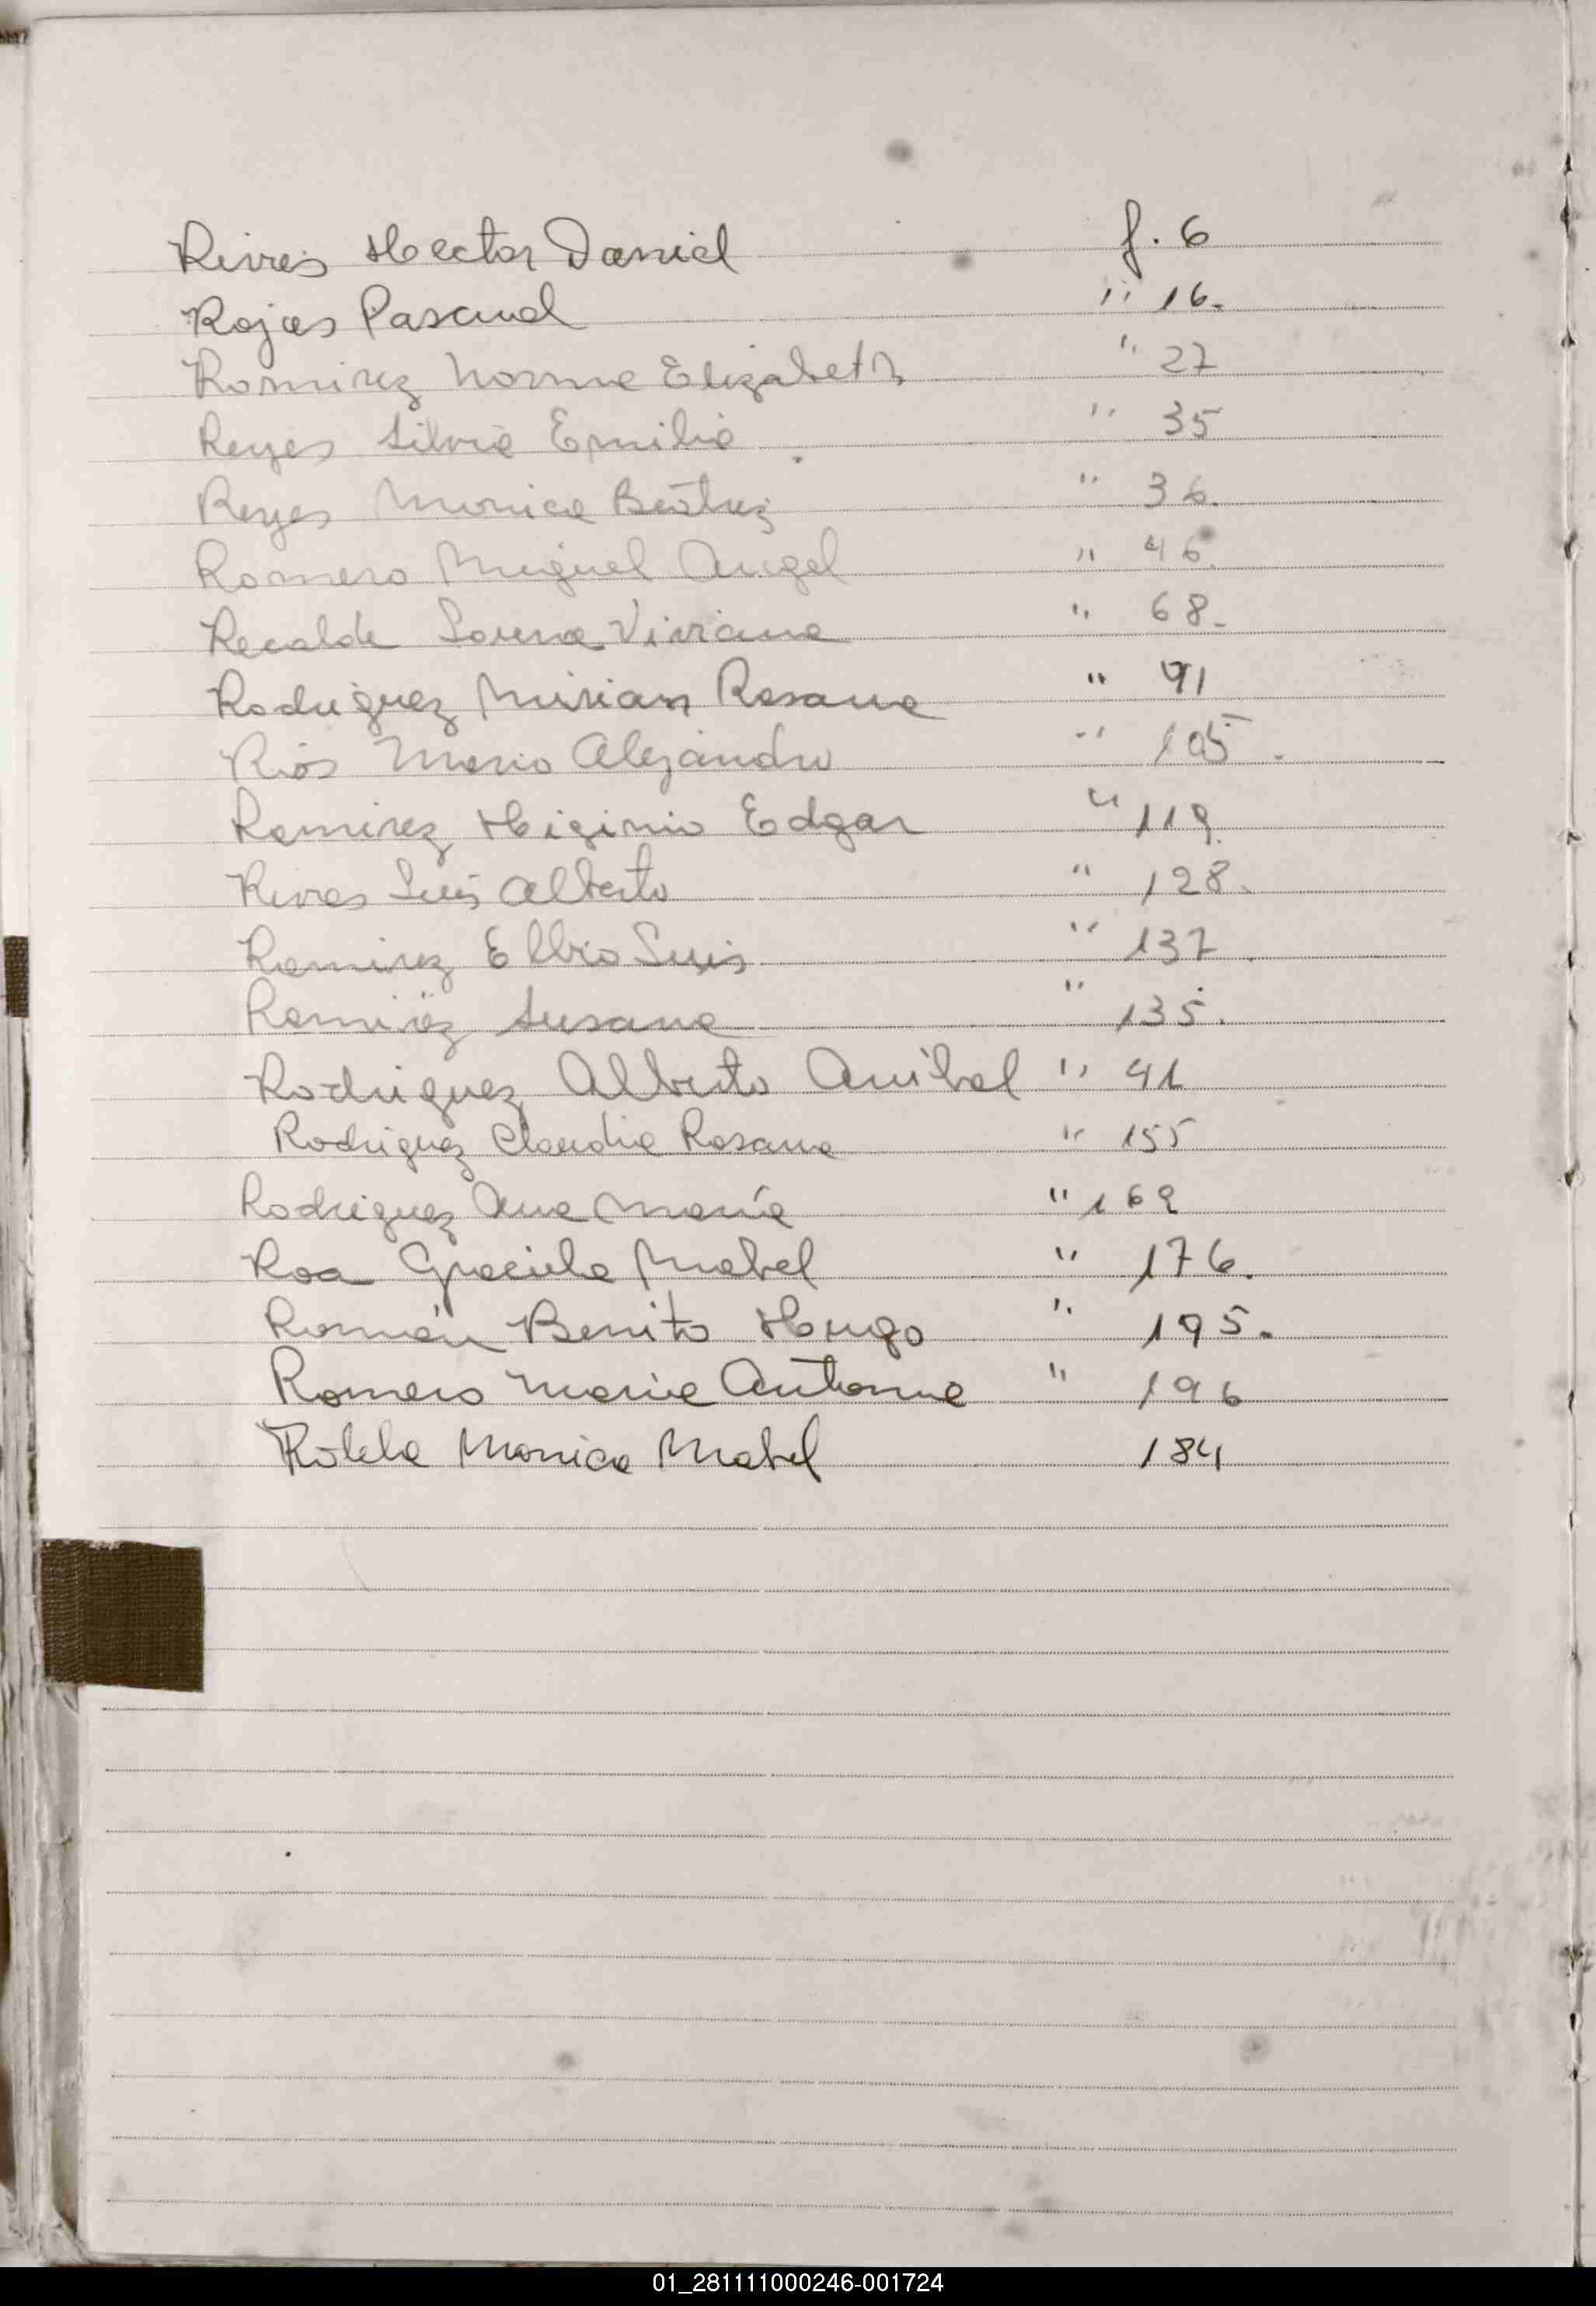 Rivas Hector Daniel f. 6
Rojas Pascual " 16.
Ramirez Norma Elizabeth " 27
Reyes Silvia Emilia " 35
Reyes Monica Beatriz " 36.
Romero Miguel Angel " 46.
Recalde Lorena Viviana " 68.
Rodriguez Miriam Rosana " 91
Rios Mario Alejandro " 105.
Ramirez Higinio Edgar " 119.
Rivas Luis Alberto " 128.
Ramirez Elbio Luis " 137.
Ramirez Susana " 135.
Rodriguez Alberto Anibal " 41
Rodriguez Claudia Rosana " 155
Rodriguez Ana María " 169
Roa Graciela Mabel " 176.
Román Benito Hugo " 195.
Romero Maria Antonia " 196
Monica Mabel 184
01_281111000246-001724